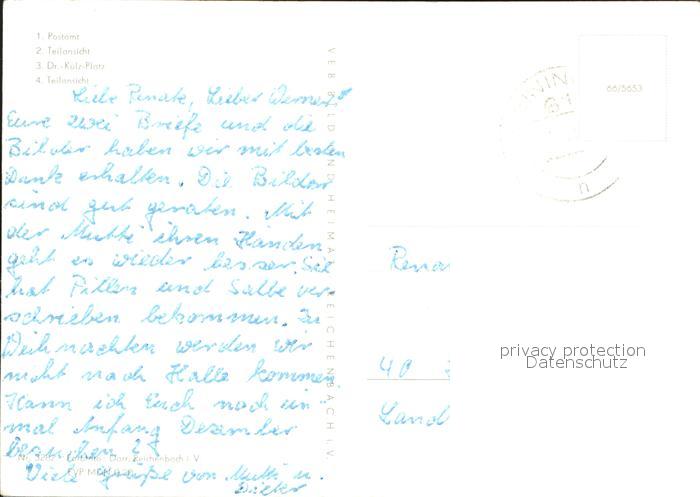 1. Postamt
2. Teilansicht
3. Dr.-Külz-Platz
4. Teilansicht
Liebe Renate, Lieber Werner!
Eure zwei Briefe und die
Bilder haben wir mit besten
Dank erhalten. Die Bilder
sind gut geraten. Mit
der Mutti ihren Händen
geht es wieder besser. Sie
hat Pillen und Salbe ver-
schrieben bekommen. Zu
Weihnachten werden wir
nicht nach Halle kommen.
Kann ich Euch noch ein-
mal Anfang Dezember
besuchen?
Viele Grüße von Mutti u.
Dieter
VEB BILD UND HEIMAT REICHENBACH I. V.
66/5653
n
Rena
40
Land
privacy protection
Datenschutz
Reichenbach i. V.